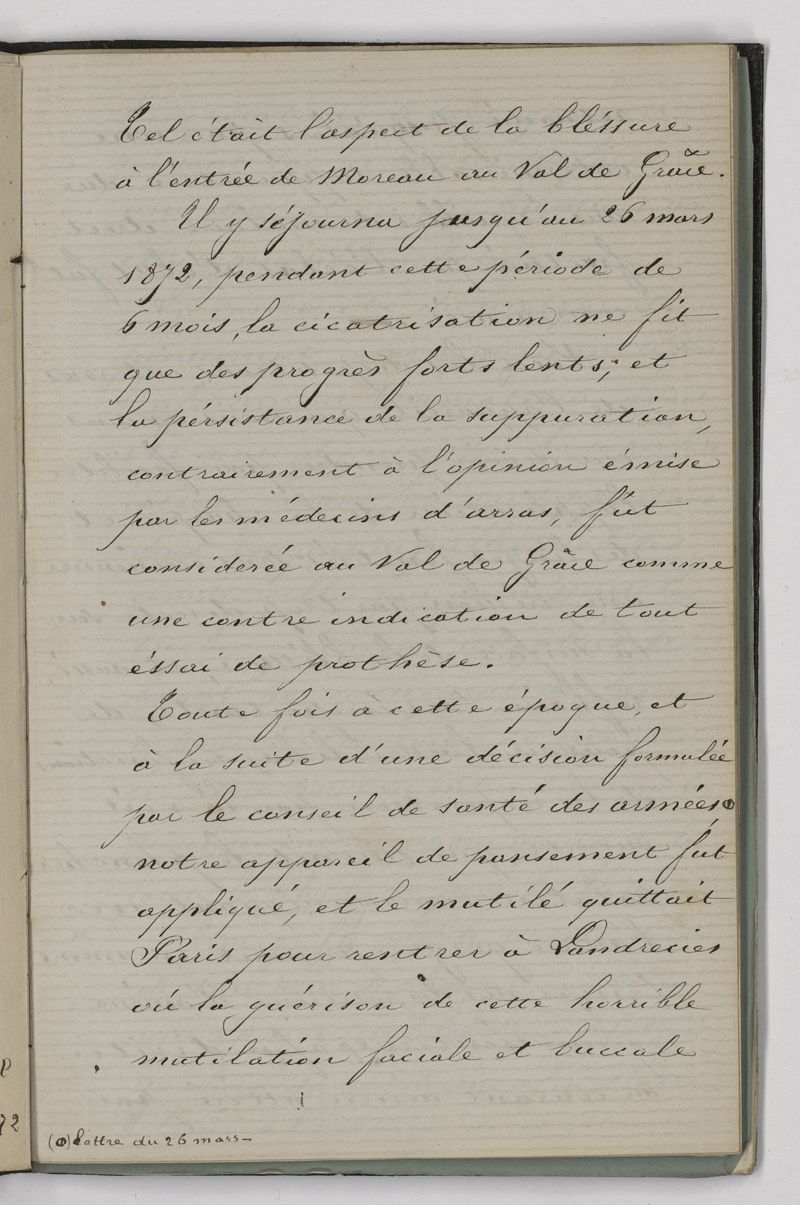 Tel était l'aspect de la bléssure
à l'entrée de Moreau au Val de Grâce.
Il y séjourna jusqu'au 26 mars
1872, pendant cette période de
6 mois, la cicatrisation ne fit
que des progrès forts lents; et
la pérsistance de la suppuration,
contrairement à l'opinion émise
par les médecins d'arras, fût
considerée au Val de Grâce comme
une contre indication de tout
éssai de prothèse.
Toute fois à cette époque, et
à la suite d'une décision formulée
par le conseil de santé des armées (o)
notre appareil de pansement fut
appliqué, et le mutilé quittait
Paris pour rentrer à Landrecies
où la guérison de cette horrible
mutilation faciale et buccale
(o) lettre du 26 mars-
P
72